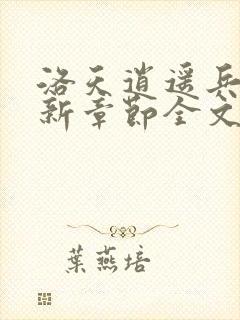 洛天逍遥兵
新章節全文
葉燕培